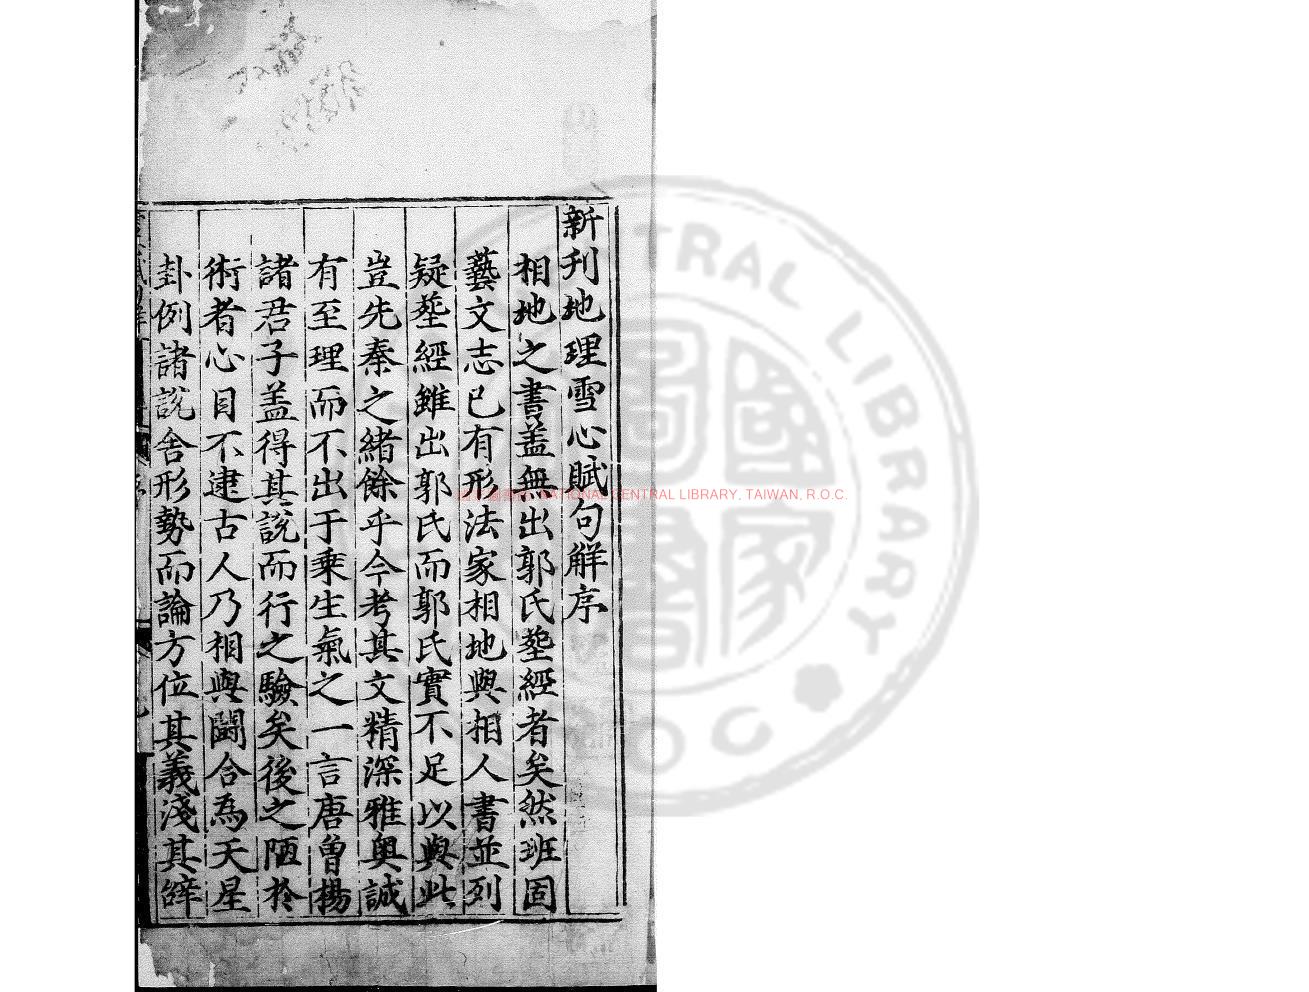 新刋地理雪心賦句觧序
相地之書盖無出郭氏塟經者矣然班固
藝文志已有形法家相地與相人書並列
疑塟經雖出郭氏而郭氏實不足以與此
豈先秦之緒餘乎今考其文精深雅奥誠
有至理而不出于乗生氣之一言唐曾楊
諸君子盖得其說而行之驗矣後之陋扵
術者心目不逮古人乃相與闘合為天星
卦例諸說舍形勢而論方位其義淺其辝
NATIONAL CENTRAL LIBRARY, TAIWAN, R.O.C.